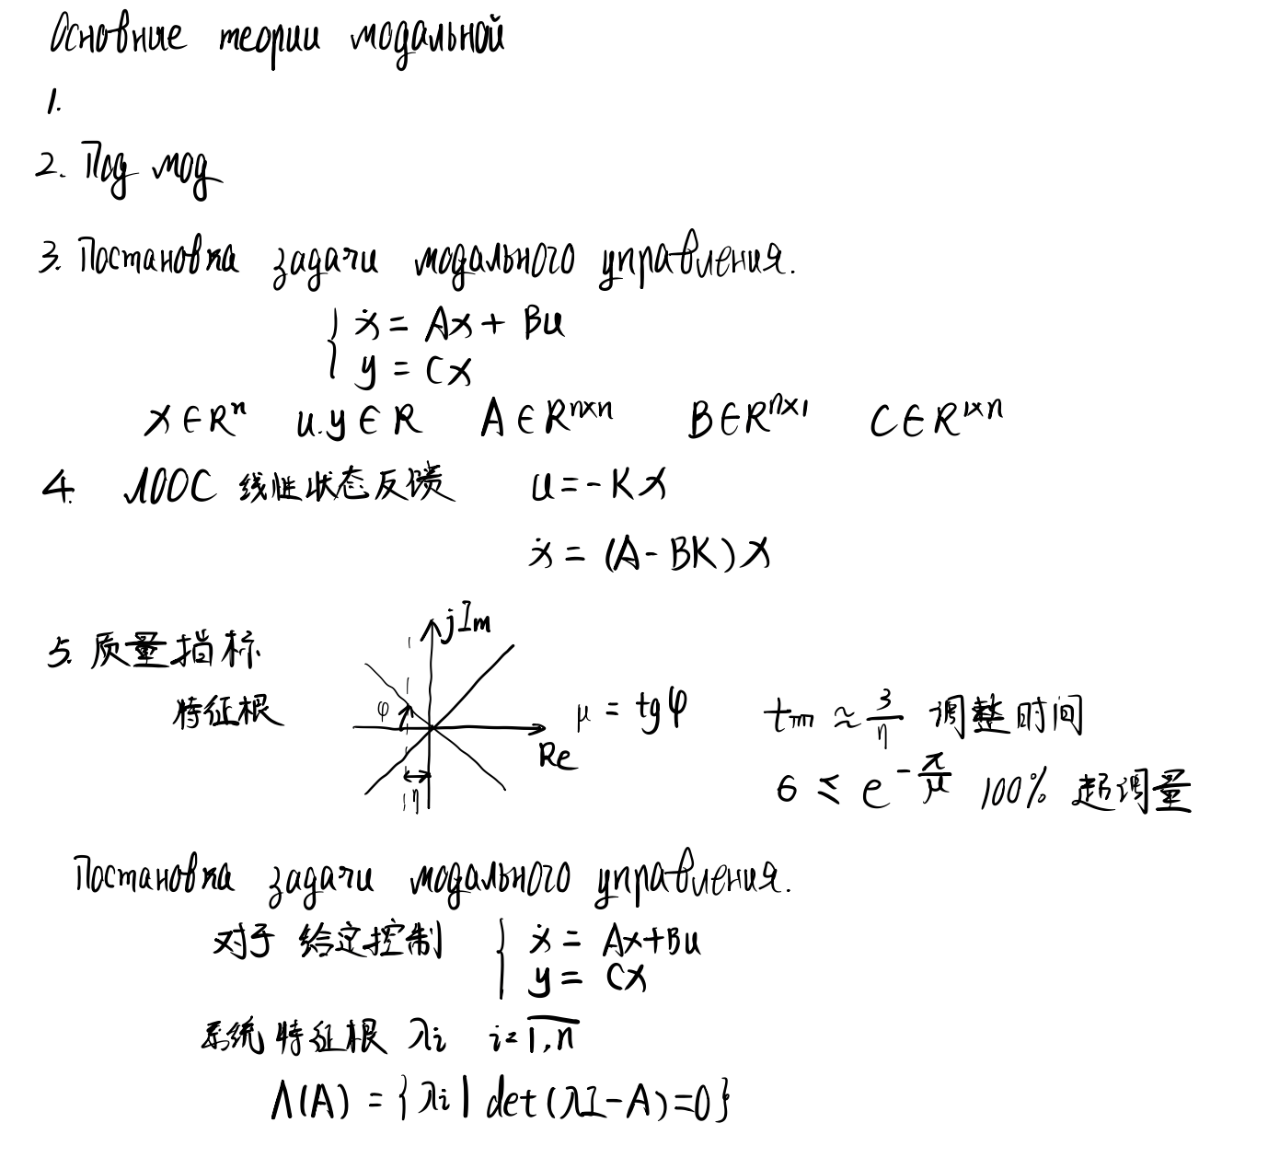 Основние теории модальной
1.
2. Под мод
3. Постановка задачи модального управления.
{ ẋ = Ax + Bu
y = Cx
x ∈ Rⁿ u.y ∈ R A ∈ Rⁿˣⁿ B ∈ Rⁿˣ¹ C ∈ R¹ˣⁿ
4. ЛООС 线性状态反馈 u = -Kx
ẋ = (A - BK)x
jIm
5. 质量指标
特征根 φ μ = tgφ tm ≈ 3/η 调整时间
Re
η
σ ≤ e^(-π/μ) 100% 超调量
Постановка задачи модального управления.
对于 给定控制 { ẋ = Ax+Bu
y = Cx
系统 特征根 λi i = 1,n
Λ(A) = {λi | det(λI-A)=0}